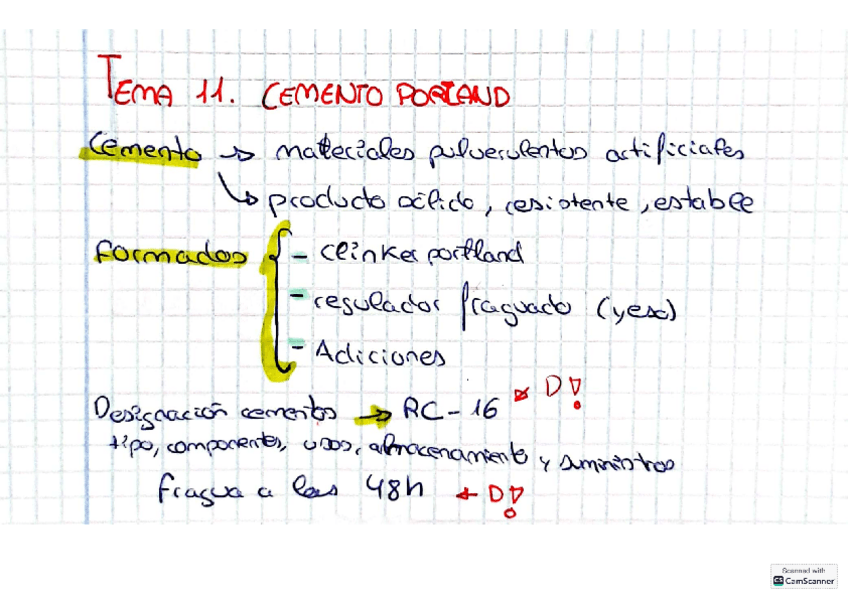 TEMA 11. CEMENTO PORTLAND
Cemento → materiales pulverulentos artificiales
↳ producto sólido, resistente, estable
Formados { - Clinker portland
- regulador fraguado (yeso)
- Adiciones
Designación cementos → RC-16 * D!
tipo, componentes, usos, almacenamiento y suministros
fragua a las 48h * D!
Scanned with
CS CamScanner